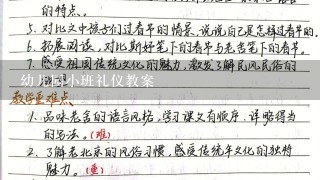 的特点。
5. 对比文中孩子们过春节的情景,说说自己是怎样过春节的。
6. 拓展阅读,对比斯好笔下的春节与老舍笔下的春节。
7. 感受祖国传统文化的魅力,激发了解民风民俗的
幼儿园小班礼仪教案
教学重难点
1. 品味老舍的语言风格,学习课文有顺序、详略得当
的写法。(难)
2. 了解老北京的风俗习惯,感受传统年文化的独特
魅力。(重)